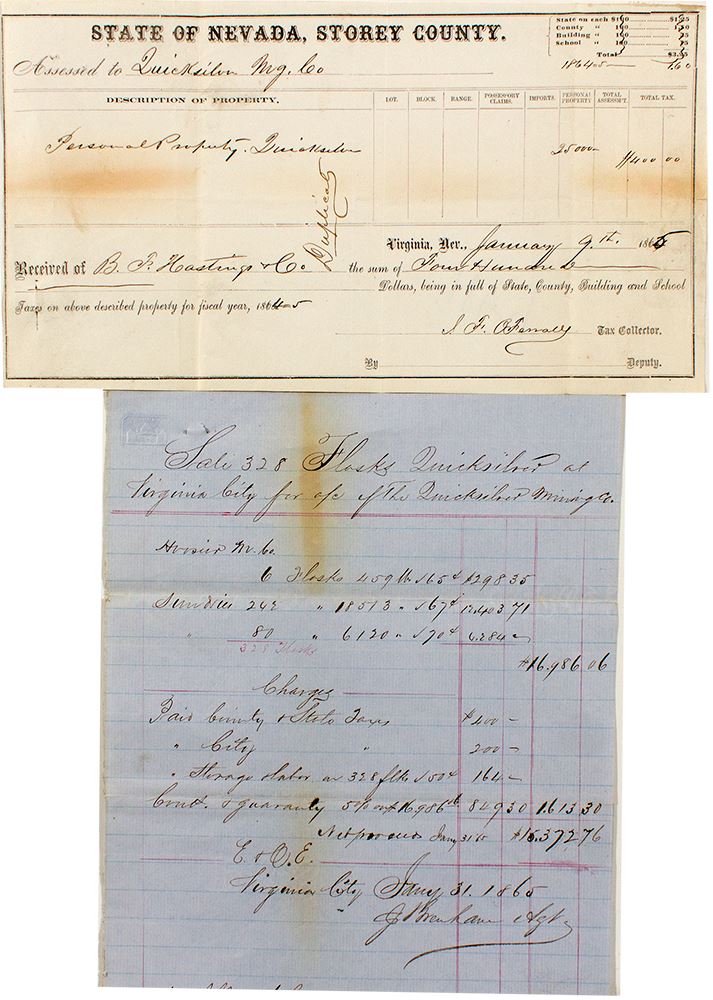 STATE OF NEVADA, STOREY COUNTY.
State on each $100 $1.25
County " 100
Building " 100
School " 100
Total
1864-5 — 1.60
Assessed to Quicksilver Mg. Co
DESCRIPTION OF PROPERTY. LOT. BLOCK. RANGE. POSSESSORY CLAIMS. IMPORTS. PERSONAL PROPERTY TOTAL ASSESSM'T. TOTAL TAX.
Personal Property. Quicksilver 25000- $400 00
Duplicate
Virginia, Nev., January 9th. 1865
Received of B. F. Hastings & Co the sum of Four Hundred
Dollars, being in full of State, County, Building and School
Taxes on above described property for fiscal year, 1864-5
J. F. O'Farrell Tax Collector.
By Deputy.
Sale 328 Flasks Quicksilver at
Virginia City for a/c of The Quicksilver Mining Co.
Hoosier M. Co.
6 Flasks 459 lb 65¢ $298 35
Sundries 242 " 18513 " 67¢ 12.403 71
" 80 " 6120 " 70¢ 4.284 -
328 Flasks
$16,986.06
Charges
Paid County & State Taxes $400 -
" City " 200 -
" Storage & labor on 328 flks 50¢ 164 -
Comt. & guaranty 5% on $16,986.06 849 30 1.613 30
Net proceeds Jany 31/65 $15.372 76
E. & O. E.
Virginia City Jany 31. 1865
J Brenham Agt.